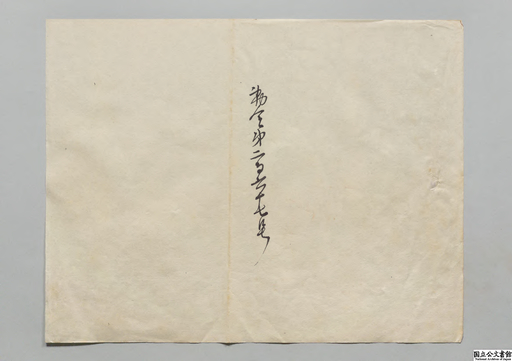 勅令第二百六十七号
国立公文書館
National Archives of Japan